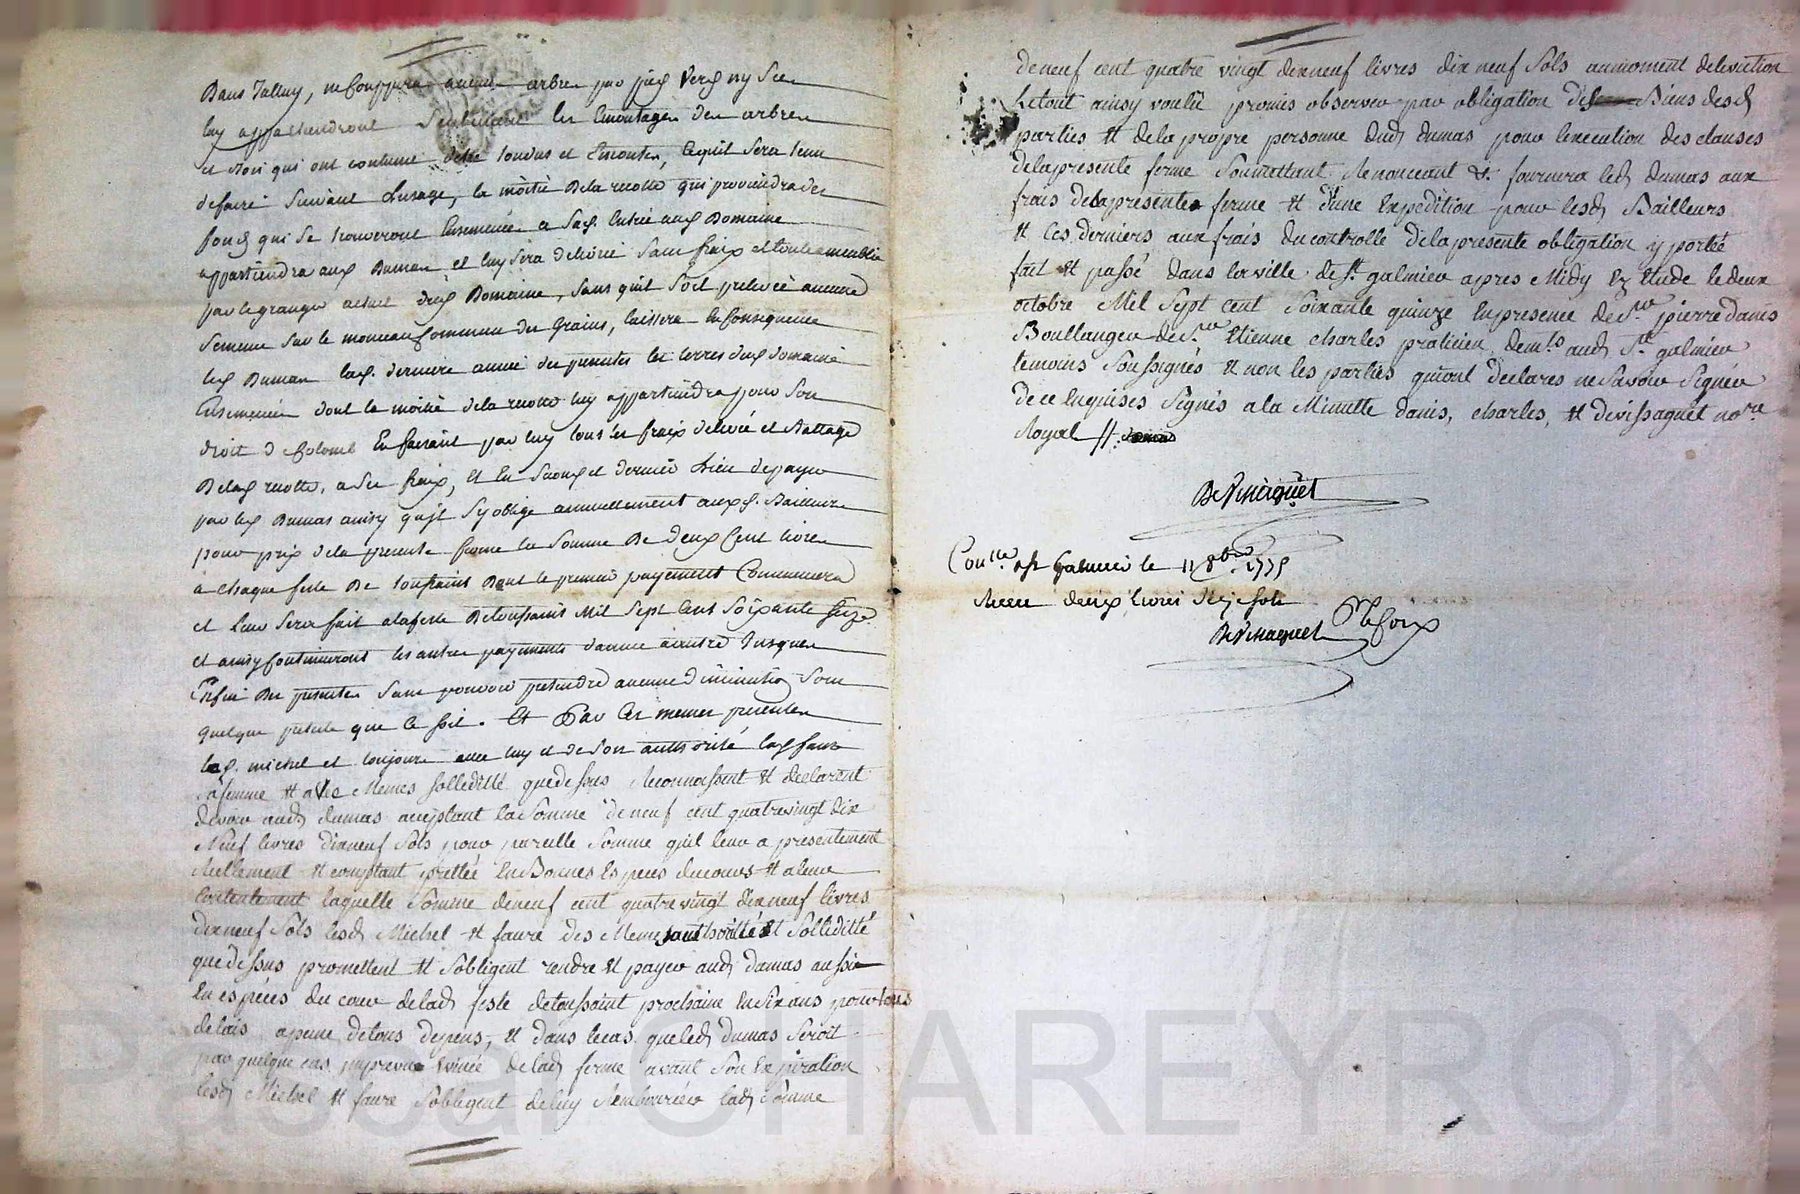 Dans Jalluy, ne Couppera aucun arbre par pied Verd ny Sec
luy appartiendront Seulement les Emontages des arbres
et bois qui ont coutume d'etre tondus et Emontés, Ce quil sera tenu
de faire Suivant Lusage, la moitié de la recolte qui proviendra des
fonds qui Se trouveront Ensemencés a Sad. Entrée auxd Domaine
appartiendra aud Dumas et luy sera delivrée Sans fraix
par le granger actuel dud Domaine, sans quil Soit prelevée aucune
Semence Sur le monceau Commun des Grains, laissera En Consequence
led Dumas lad. derniere année des presentes les terres dud domaine
Ensemencées dont la moitié de la recolte luy appartiendra pour Son
droit de Colonne En faisant par luy tous les fraix de levée et Battage
De lad recolte, a Ses fraix, Et En Second et dernier Lieu de payer
par led Dumas ainsy quil Sy oblige annuellement auxd. Bailleurs
pour prix de la presente ferme la Somme De Deux Cent livres
a chaque feste De toussaints Dont le premier payement Commencera
et Leur Sera fait a la feste De toussaints Mil Sept Cent Soixante Seize
et ainsy Continueront les autres payements d'année a autre Jusques
Enfin Des presentes Sans pouvoir pretendre aucune Diminution Sous
quelque pretexte que Ce soit. Et Par Ces memes presentes
led. michel et toujours avec luy et de Son authorité lad faure
sa femme & a les Memes solleditté que dessus Reconnaissent & declarent
devoir aud dumas acceptant la Somme de neuf cent quatre vingt dix
Neuf livres dixneuf Sols pour pareille Somme quil leur a presentement
Reellement & comptant prettée En Bonnes Especes du cours & a leur
Contentement laquelle Somme de neuf cent quatre vingt dixneuf livres
dixneuf Sols lesd Michel & faure des Memes authorittés & Solleditté
que dessus promettent & S'obligent rendre & payer aud dumas aussi
En espéces du cour de lad feste de toussaint prochaine En Six ans pour tous
delais a peine de tous depens, & dans le cas que led dumas Seroit
par quelque cas imprevue Evincé de lad ferme avant Son Expiration
lesd Michel & faure S'obligent de luy Rembourcer lad Somme
de neuf cent quatre vingt dixneuf livres dix neuf Sols au moment de leviction
Le tout ainsy voulu promis observer par obligation des Biens desd
parties & de la propre personne dud dumas pour lexecution des clauses
de la presente ferme Soumettant Renonceant &. fournira led dumas aux
frais de la presente ferme & d'une Expedition pour lesd Bailleurs
& Ces derniers aux frais du controlle de la presente obligation y portée
fait & passé dans la ville de St galmier apres Midy En Etude le deux
octobre Mil Sept cent Soixante quinze En presence de Sr. pierre danis
Boullanger de Sr. Etienne charles praticien demts aud St. galmier
temoins Soussignés & non les parties qui ont declarés ne Savoir Signer
de ce Enquises Signés a la Minutte danis, charles, & devissaguet nore
Royal //.
DeVissaguet
Conlle. a St Galmier le 11 8bre. 1775
Receu deux livres
DeVissaguet